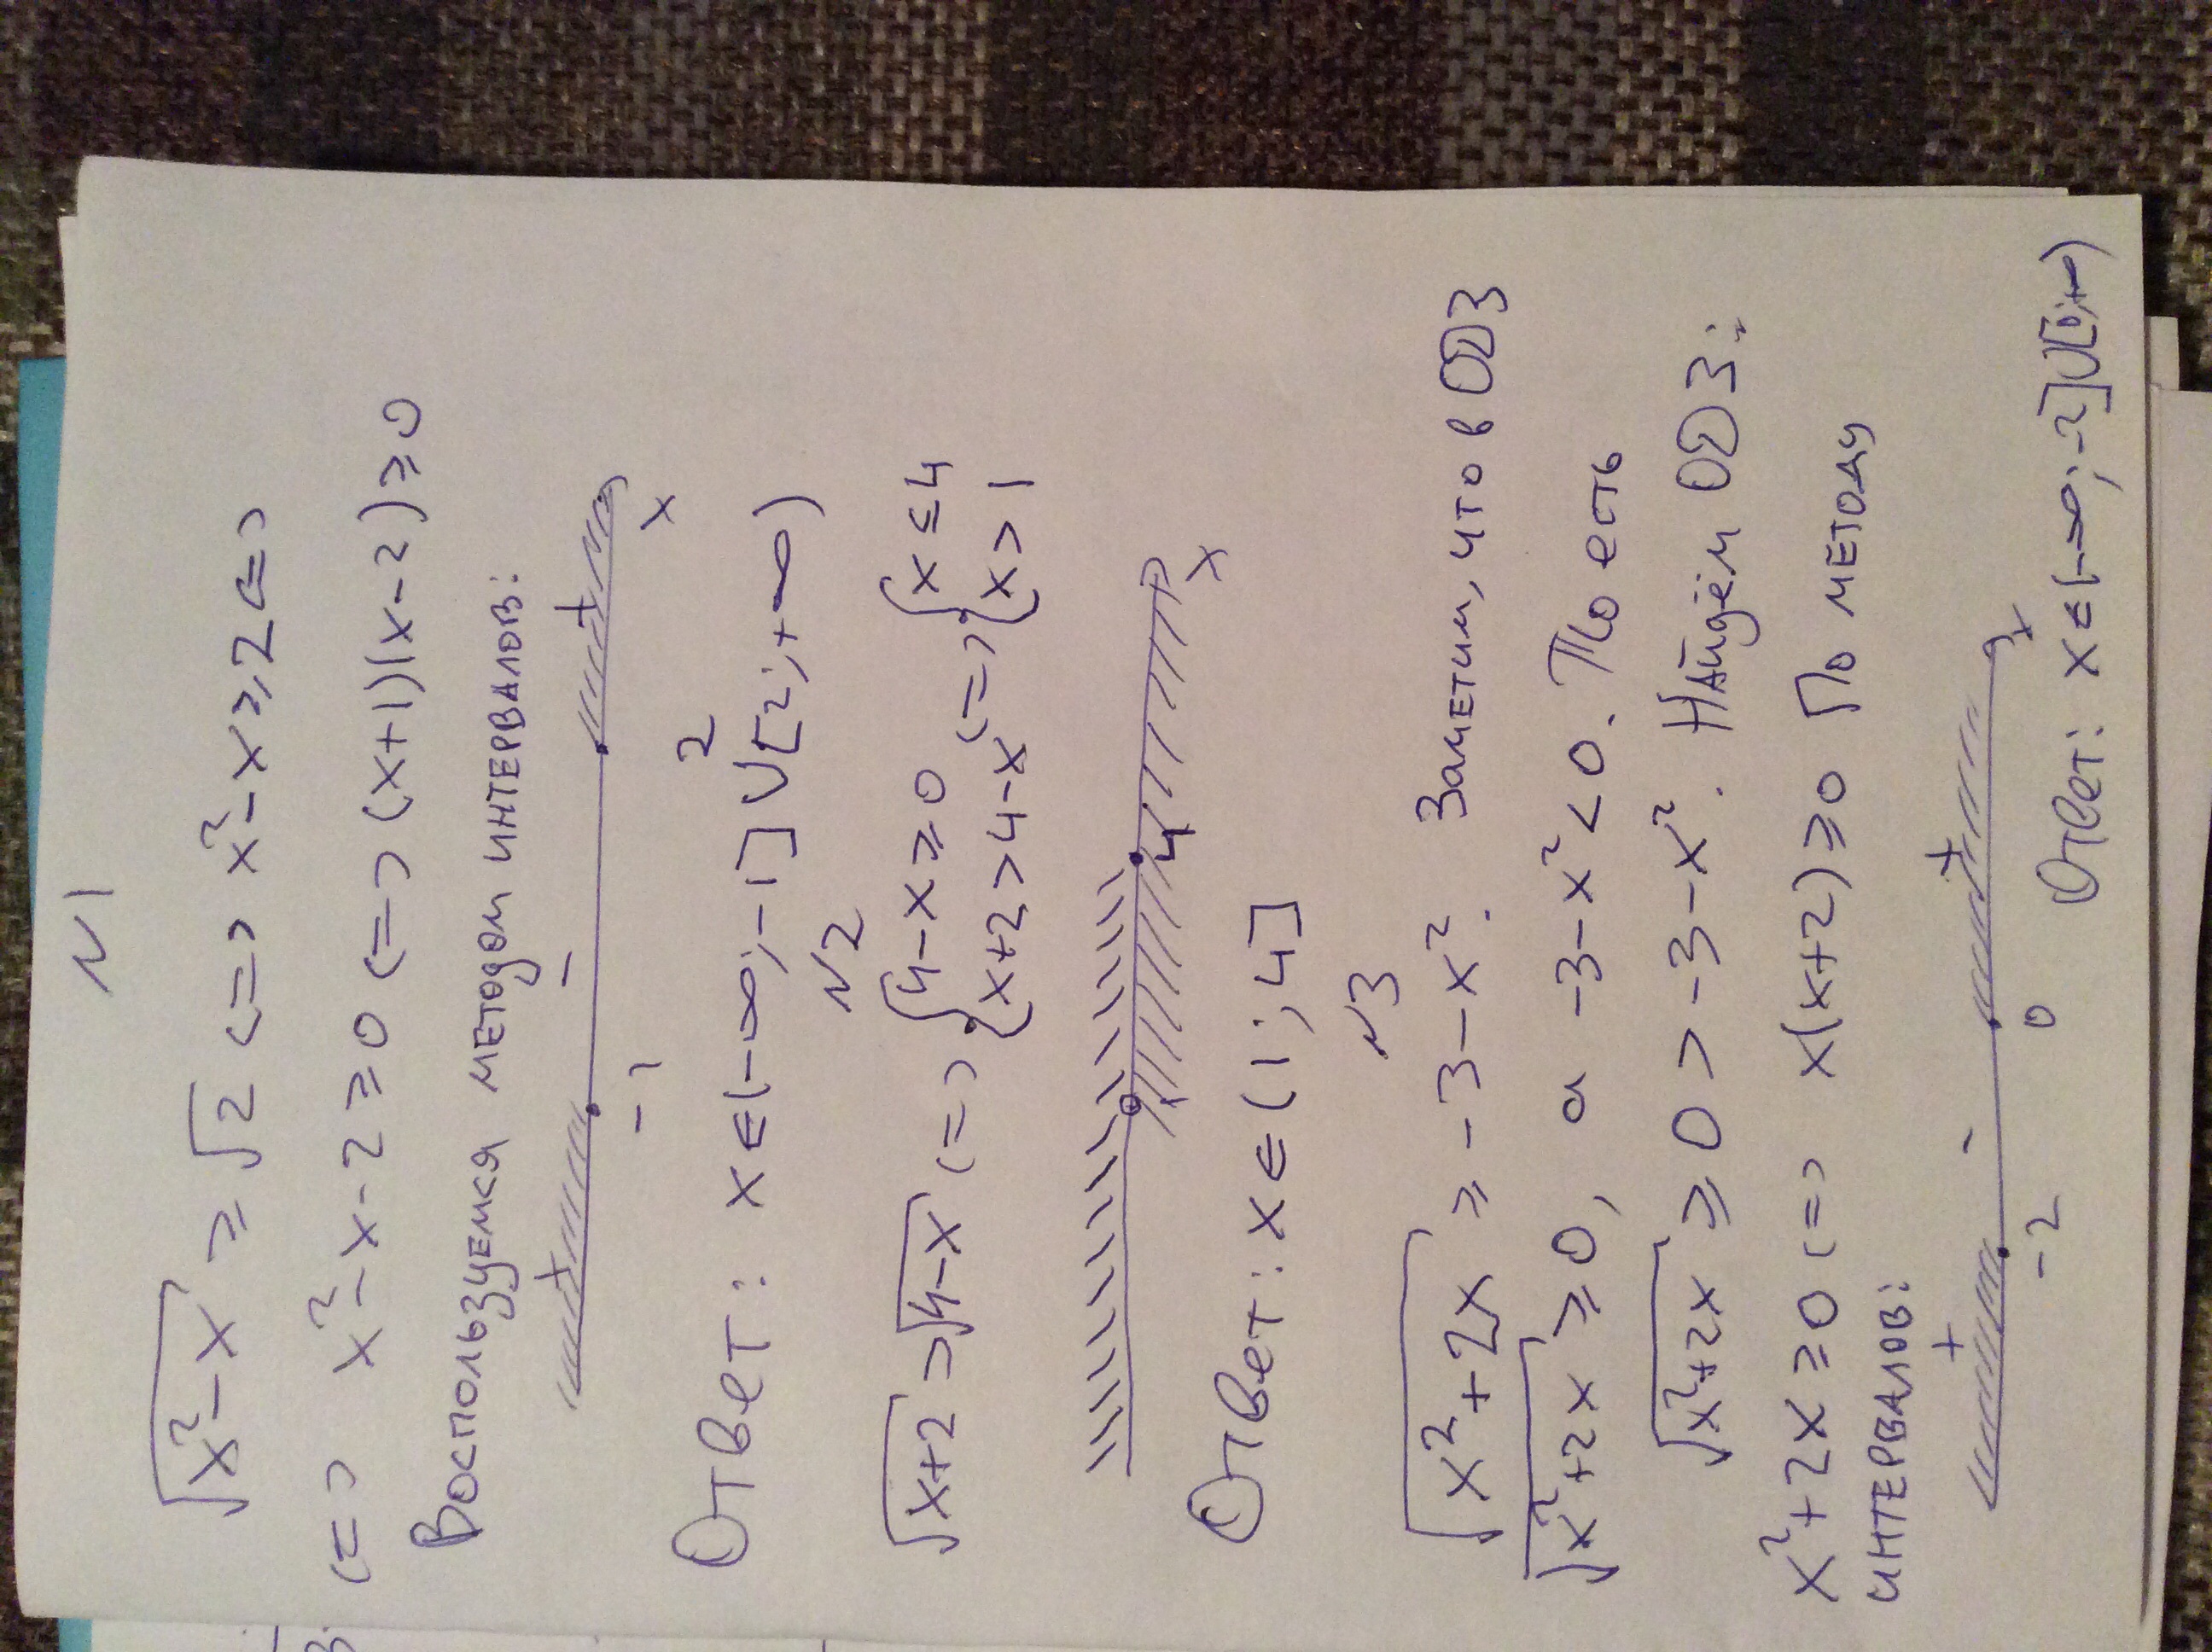 N1
√x²-x ≥ √2 <=> x²-x ≥ 2 <=>
<=> x²-x-2 ≥ 0 <=> (x+1)(x-2) ≥ 0
Воспользуемся методом интервалов:
+ - +
-1 2 x
Ответ: x∈(-∞;-1]∪[2;+∞)
N2
√x+2 > √4-x <=> {4-x ≥ 0 <=> {x ≤ 4
{x+2 > 4-x {x > 1
1 4 x
Ответ: x∈(1;4]
N3
√x²+2x ≥ -3-x². Заметим, что в ОДЗ
√x²+2x ≥ 0, а -3-x² < 0. То есть
√x²+2x ≥ 0 > -3-x². Найдём ОДЗ:
x²+2x ≥ 0 <=> x(x+2) ≥ 0 По методу
интервалов:
+ - +
-2 0 x
Ответ: x∈(-∞;-2]∪[0;+∞)